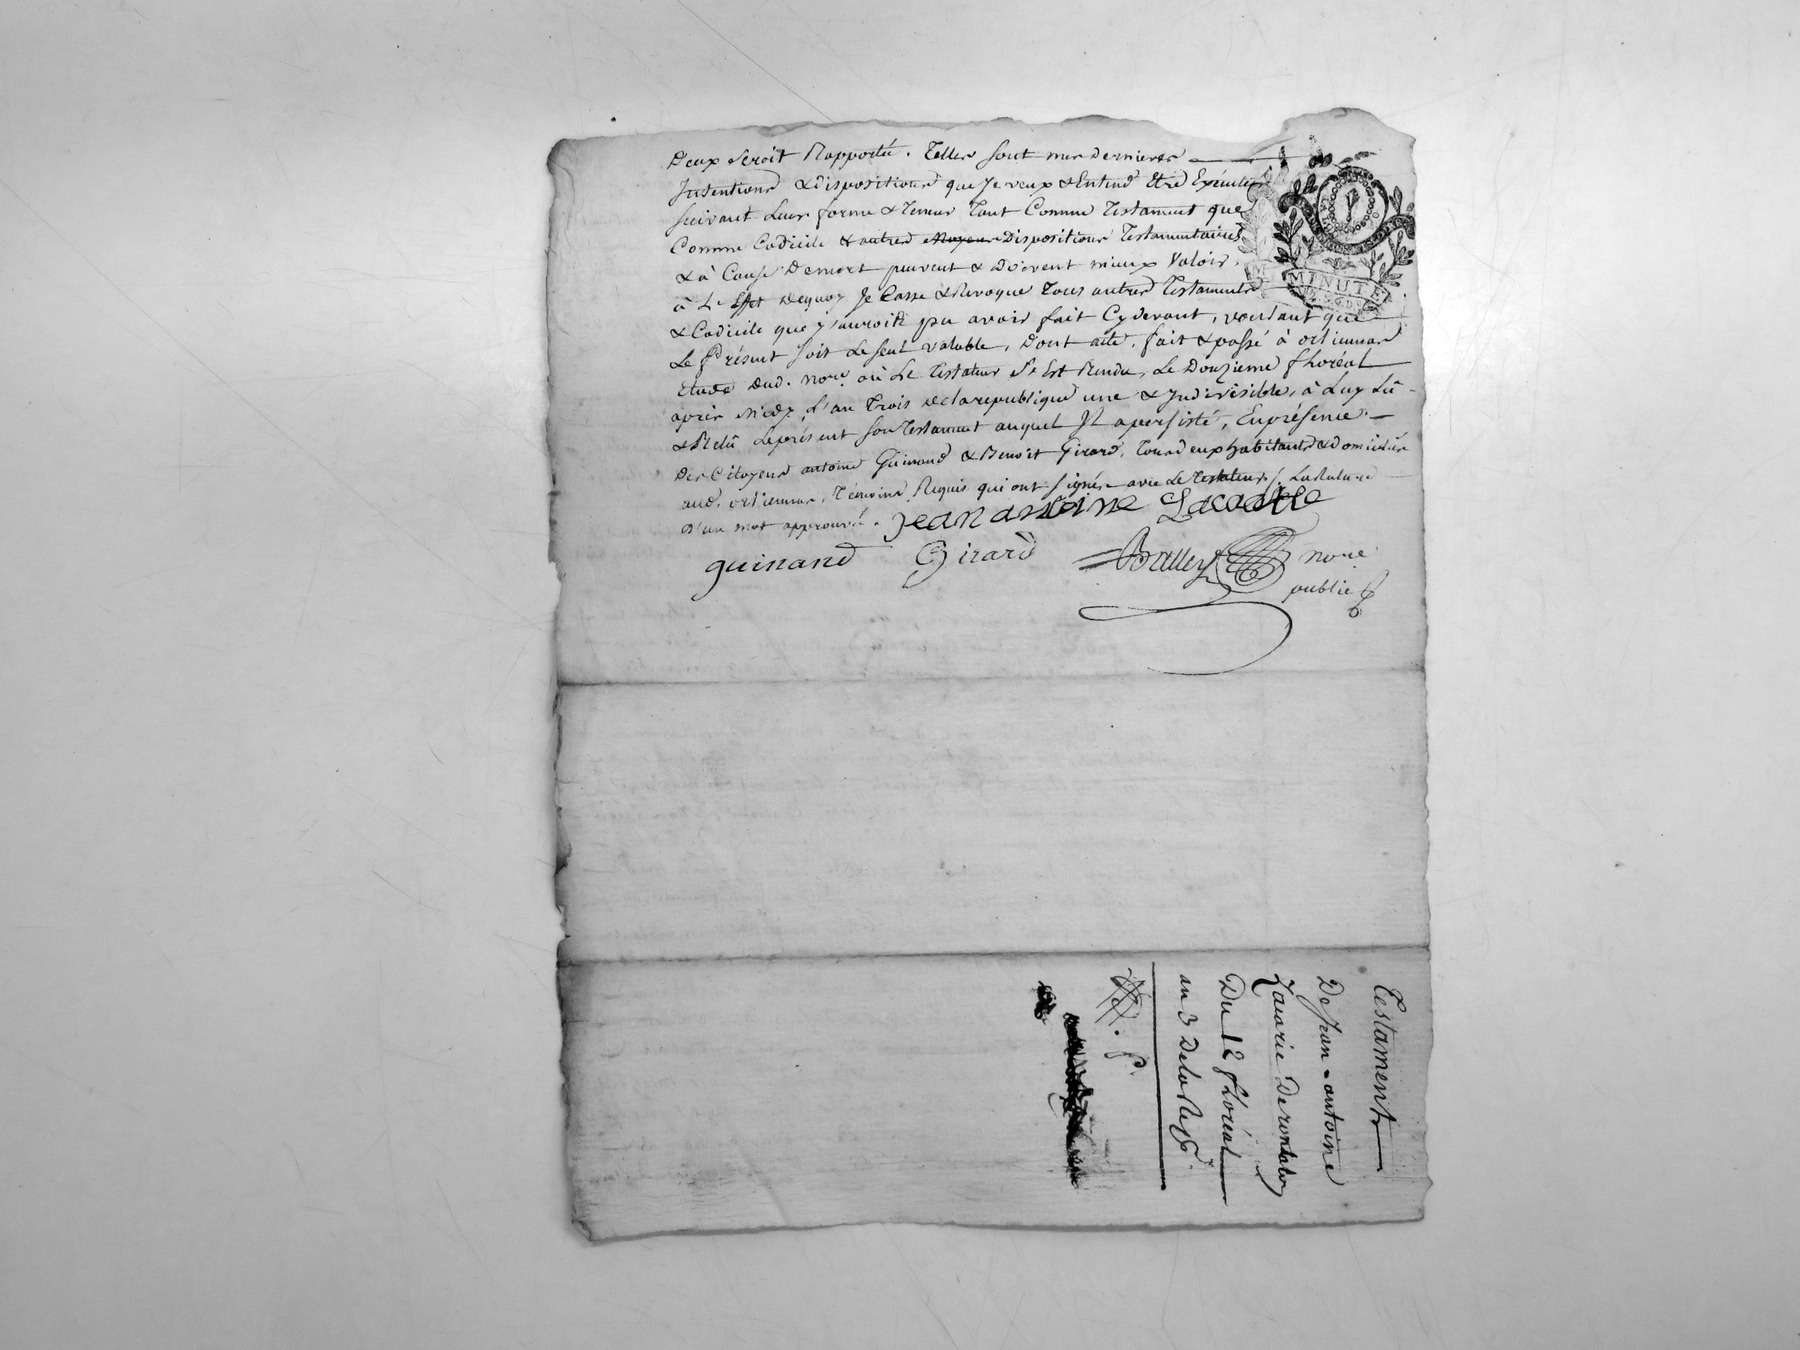 Deux seroit Rapporté. Telles sont mes dernieres
Intentions & dispositions que Je veux & Entend Etre Exécutées
suivant Leur forme & teneur Tant Comme Testament que
Comme Codicile & autres Moyens Dispositions Testamentaires
& à Cause De mort peuvent & doivent mieux Valoir.
à L'Effet Dequoy Je Casse & Revoque Tous autres Testaments
& Codicile que J'aurois pu avoir fait Cy devant, voulant que
Le Présent soit Le seul valable, Dont acte, fait & passé à
Etude dud. nore. où Le Testateur s'Est Rendu, Le Douzieme floréal
après midy, L'an Trois de la republique une & Indivisible, à Luy Lû
& Relû Le présent son Testament auquel Il a persisté, En présence
Des Citoyens antoine Guinand & Benoit Girard, Tous deux habitants & domiciliés
aud. Témoins Requis qui ont signé avec Le Testateur. La Rature
D'un mot approuvé. jean antoine
guinand Girard Balley nore.
public
MINUTE
Testament
De Jean-antoine
Du 12 floréal
an 3 De la Rep.